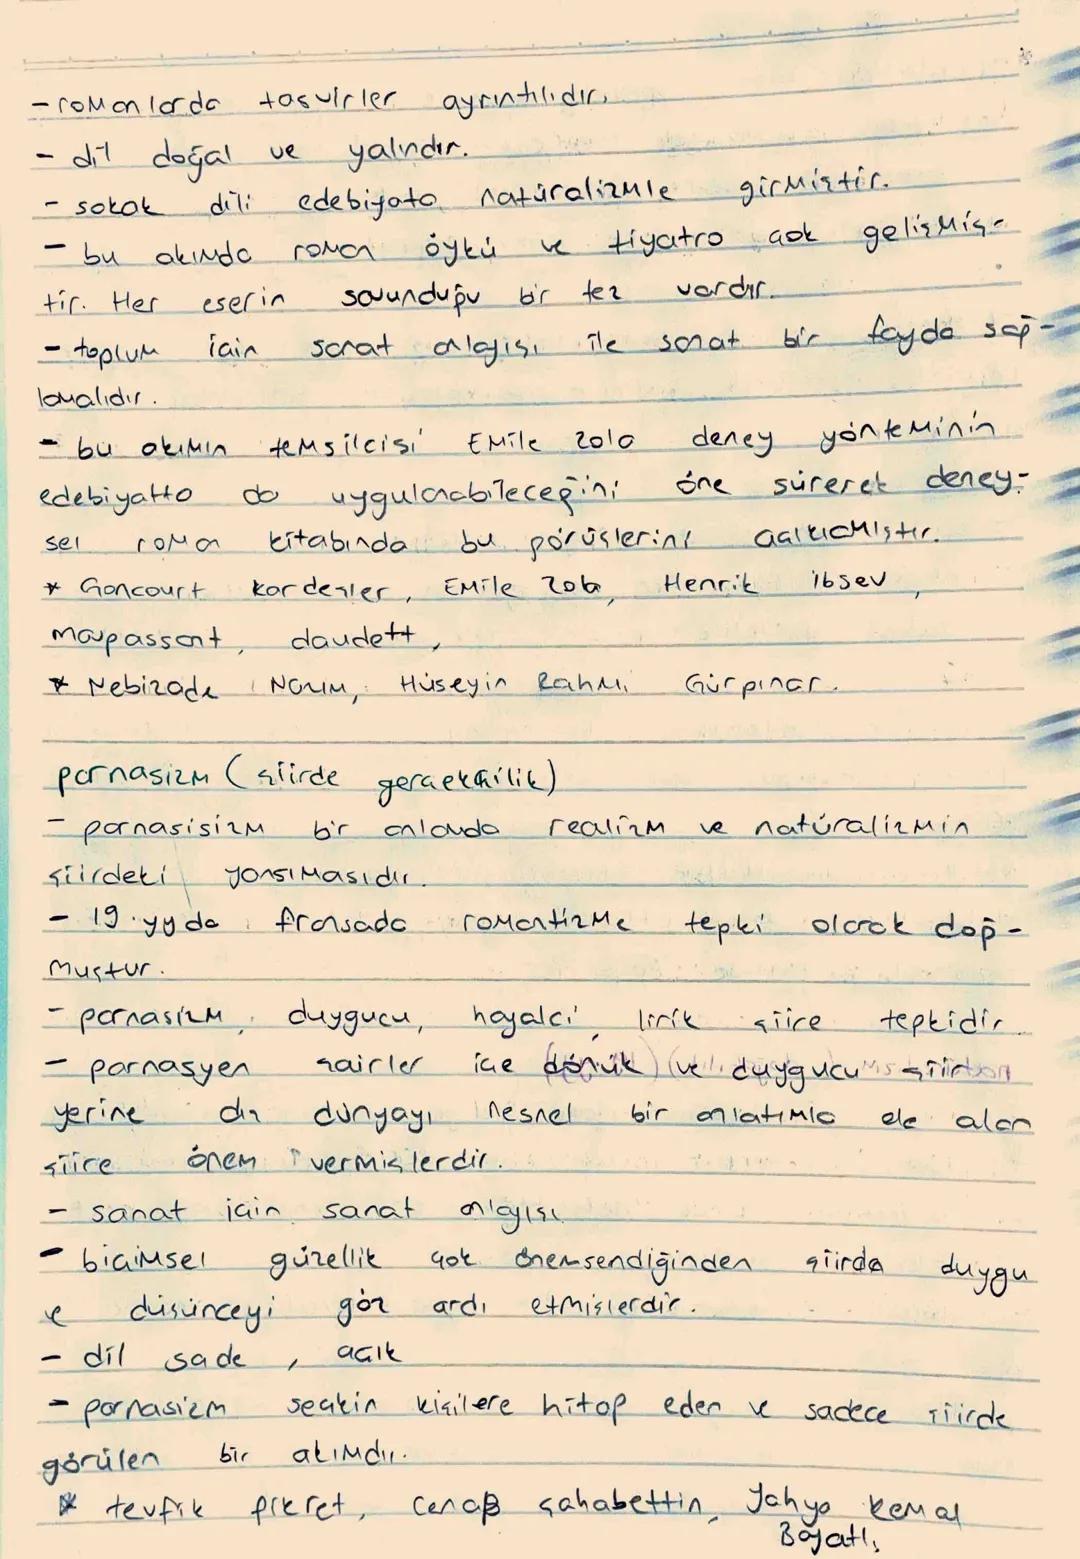 - romanlarda tasvirler ayrıntılıdır.
- dil doğal ve yalındır.
- sokak dili edebiyata natüralizmle girmiştir.
- bu akımda roman öykü ve tiyatro çok gelişmiş-
tir. Her eserin savunduğu bir tez vardır.
- toplum için sanat anlayışı ile sanat bir fayda sağ-
lamalıdır.
- bu akımın temsilcisi Emile Zola deney yönteminin
edebiyatta da uygulanabileceğini öne sürerek deney-
sel roman kitabında bu görüşlerini açıklamıştır.
* Goncourt kardeşler, Emile Zola, Henrik ibsev,
maupassant, daudett,
* Nebizade Nazım, Hüseyin Rahmi Gürpınar.
parnasizm (şiirde gerçekçilik)
- parnasisizm bir anlamda realizm ve natüralizmin
şiirdeki yansımasıdır.
- 19.yyda fransada romantizme tepki olarak doğ-
muştur.
- parnasizm, duygucu, hayalci, lirik şiire tepkidir.
- parnasyen şairler içe dönük ve duygucu şiir
yerine dış dünyayı nesnel bir anlatımla ele alan
şiire önem vermişlerdir.
- sanat için sanat anlayışı
- biçimsel güzellik çok önemsendiğinden şiirde duygu
ve düşünceyi göz ardı etmişlerdir.
- dil sade, açık
- parnasizm seçkin kişilere hitap eden ve sadece şiirde
görülen bir akımdır.
* tevfik fikret, Cenap şahabettin, Yahya Kemal
Bayatlı,